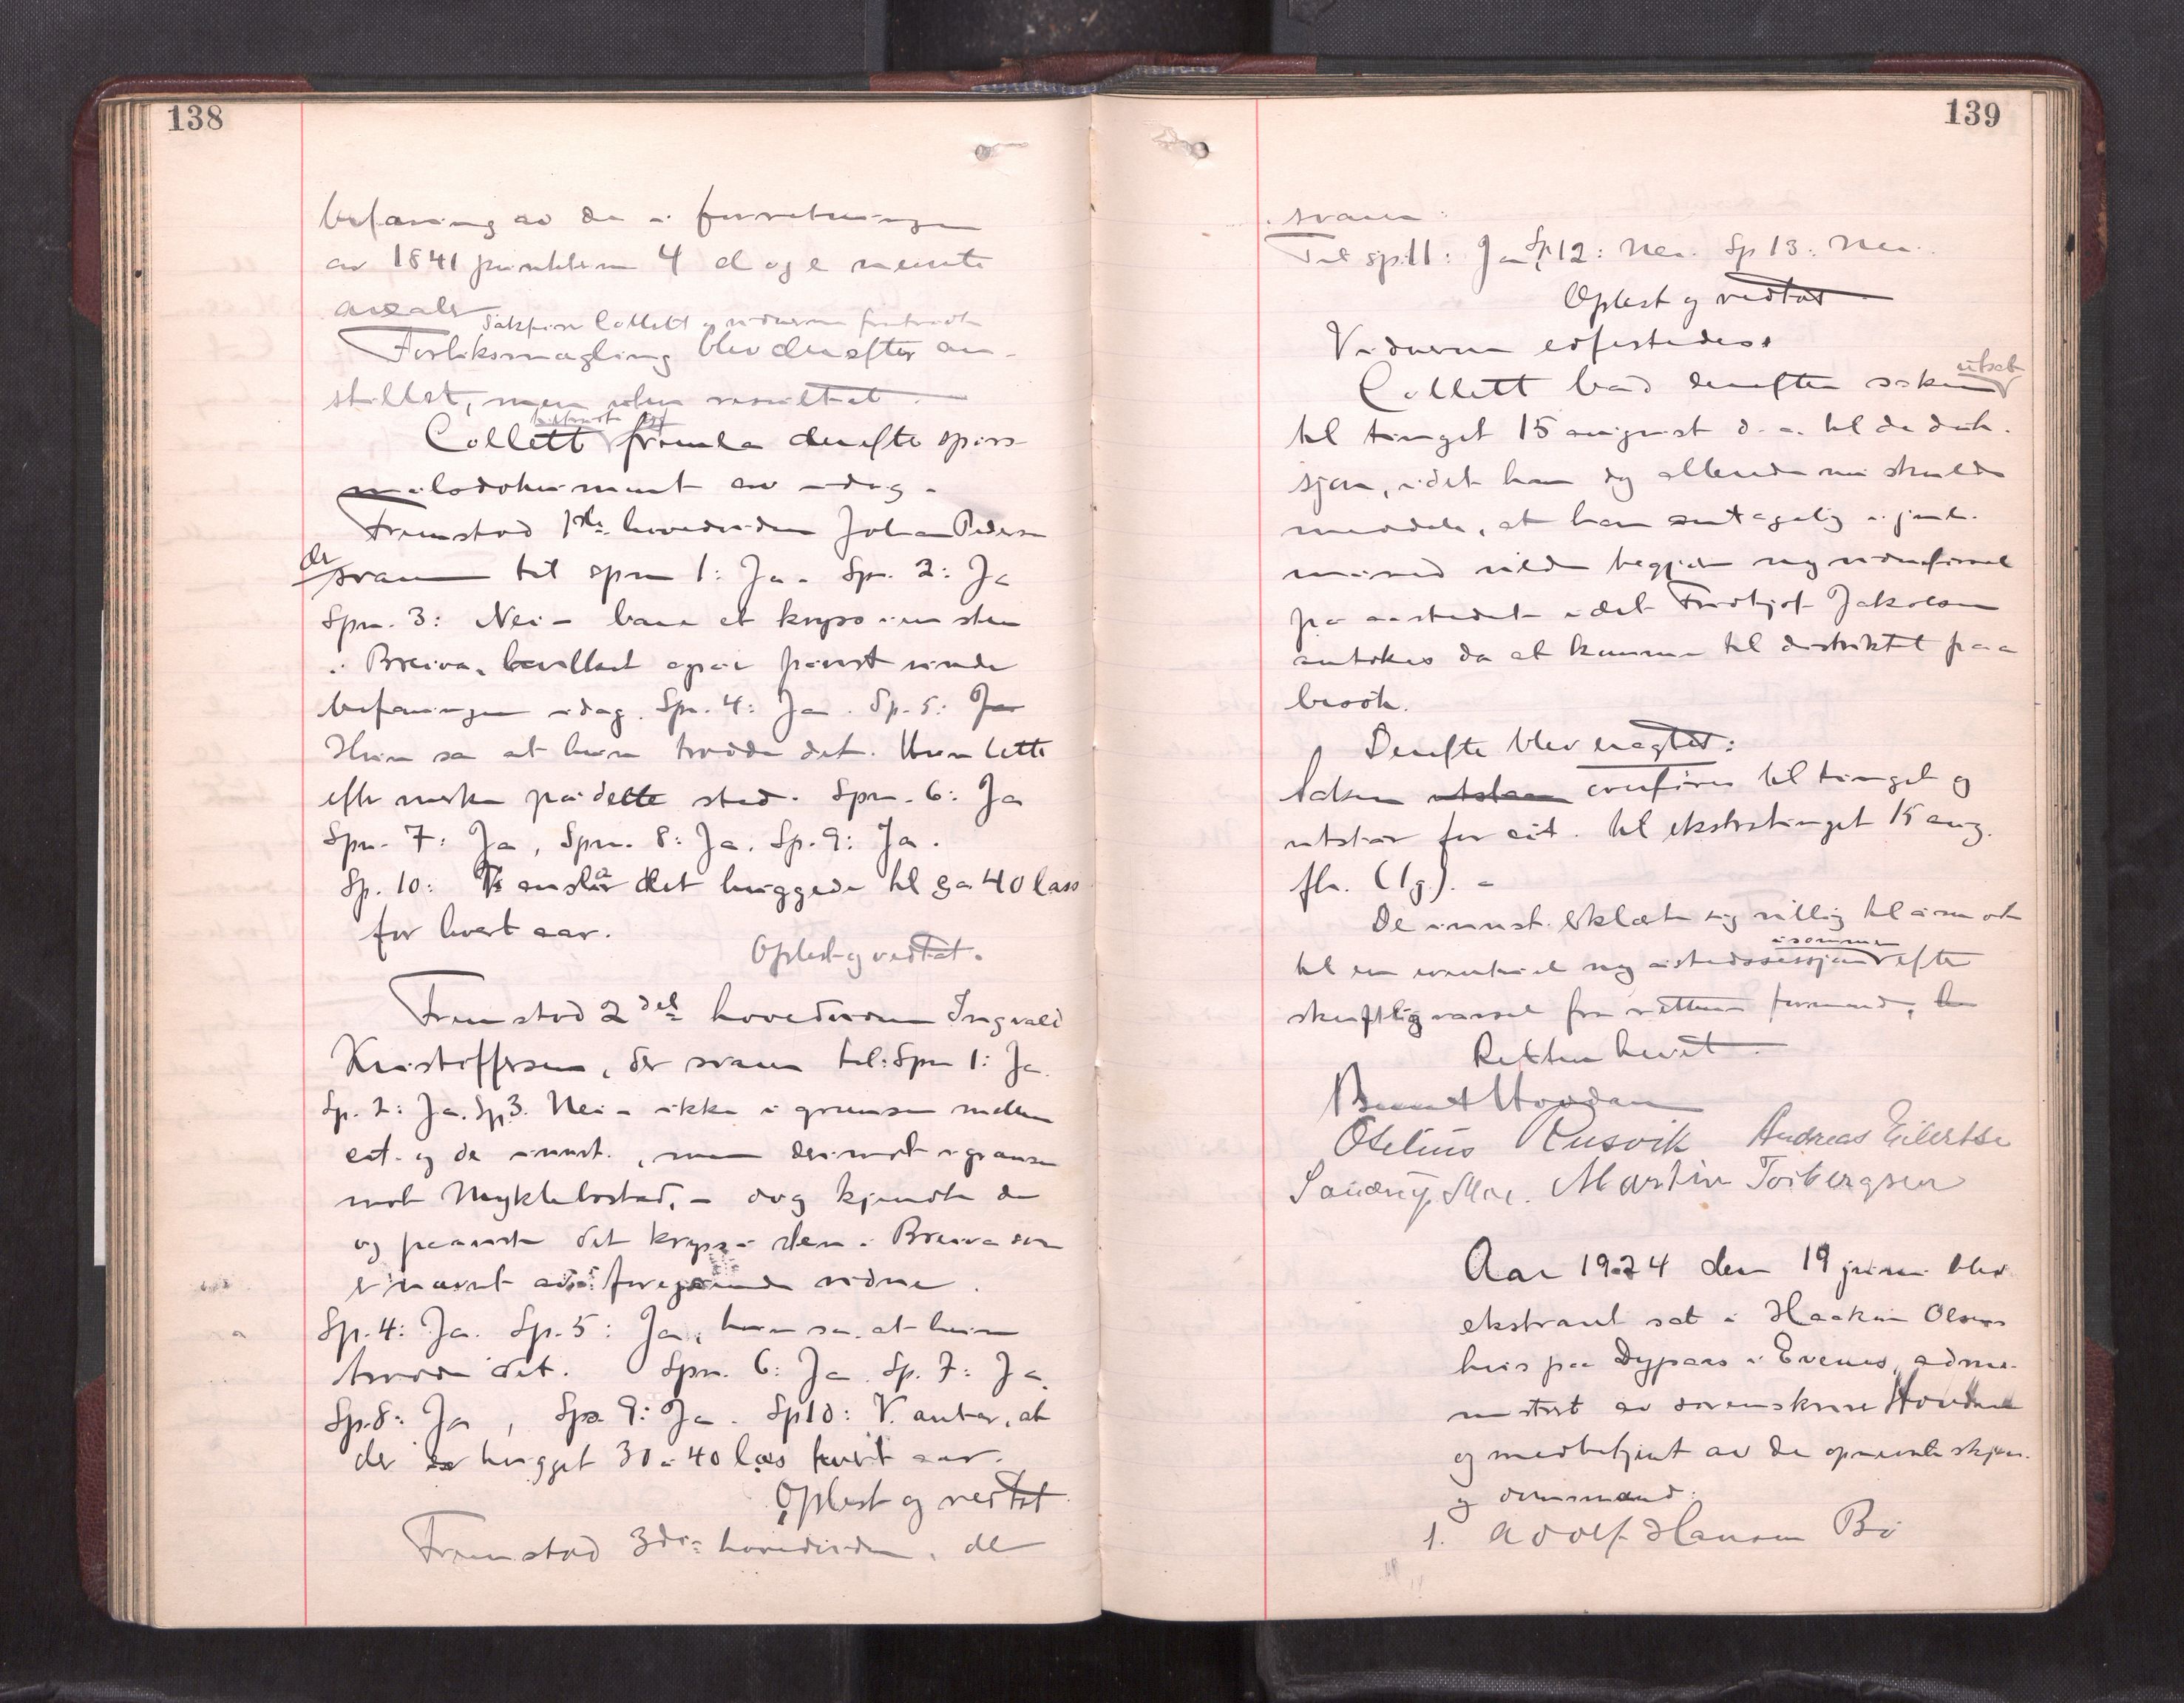 138
befaring av de i forretningen
av 1841 punkterne 4 d og e nevnte
arealer
Sakfører Collett og vidnerne fratraadte
Forliksmægling blev derefter an-
stillet, men uten resultat.
tiltraadte og
Collett fremla derefter spørs-
maalsdokument av idag.
Fremstod 1ste hovedvidne Johan Pedersen
der
svarer til spm 1: Ja. Sp. 2: Ja
Spm. 3: Nei - bare et kryss i en sten
i Breiva, hvilket ogsaa paavist under
befaringen idag. Sp. 4: Ja. Sp. 5: Ja
Hun sa at hun trodde det. Hun lette
efter merke paa dette sted. Spm. 6: Ja
Spm. 7: Ja, Spm. 8: Ja. Sp. 9: Ja.
Sp. 10: Vi anslaar det huggede til ca 40 lass
for hvert aar.
Oplest og vedtat.
Fremstod 2det hovedvidne Ingvald
Kristoffersen, der svarer til: Spm 1: Ja.
Sp. 2: Ja. Sp 3. Nei - ikke i grensen mellem
cit. og de innst., men derimot i grænsen
mot Myklebostad, - dog kjendte de
og paaviste det kryss i sten i Breiva som
er nævnt av foregaaende vidne.
Sp. 4: Ja. Sp. 5: Ja, hun sa at hun
trodde det. Spm. 6: Ja. Sp. 7: Ja.
Sp. 8: Ja, Sp. 9: Ja. Sp 10: V. antar, at
der er hugget 30 a 40 læs hvert aar.
Oplest og vedtat
Fremstod 3die hovedvidne, der
139
svarer:
Til sp. 11: Ja Sp. 12: Nei. Sp 13: Nei.
Oplest og vedtat
Vidnerne edfestedes.
utsat
Collett bad derefter saken
til tinget 15 august d. a. til deduk-
sjon, idet han dog allerede nu skulde
meddele, at han antagelig i juli
maaned vilde begjære ny vidneførsel
paa aastedet idet Fridtjof Jakobsen
antokes da at komme til distriktet paa
besøk.
Derefter blev eragtet:
Saken utstaar overføres til tinget og
utstaar for cit. til ekstratinget 15 aug.
fk. (lg.). -
De innst. erklærte sig villig til å møte
isommer
til en eventuel ny åstedssesjon efter
skriftlig varsel fra rettens formand,
Retten hevet
Bernt Hovdan
Otelius Rusvik Andreas Eilertsen
Martin Torbergsen
Aar 1924 den 19 juni blev
ekstraret sat i Haakon Olsens
hus paa Dypaas i Evenes, admi-
nistrert av sorenskriver Hovdan
og medbetjent av de opnevnte skjøn-
og domsmænd:
1. Adolf Hansen Bø